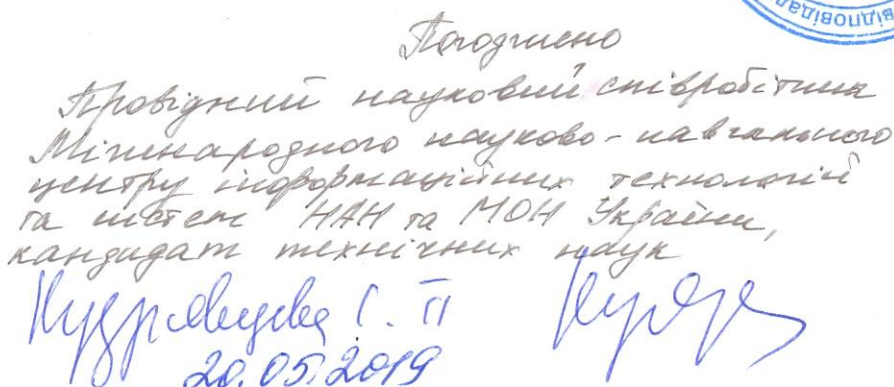 відповідал
Погоджено
Провідний науковий співробітник
Міжнародного науково-навчального
центру інформаційних технологій
та систем НАН та МОН України,
кандидат технічних наук
Кудрявцева С. П
20.05.2019